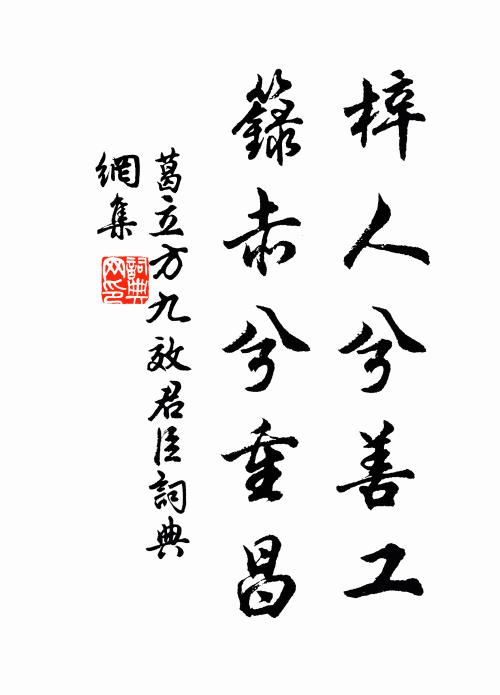 梓人兮善工
籙赤兮重昌
葛立方九效君臣詞典
網集
詞典網印